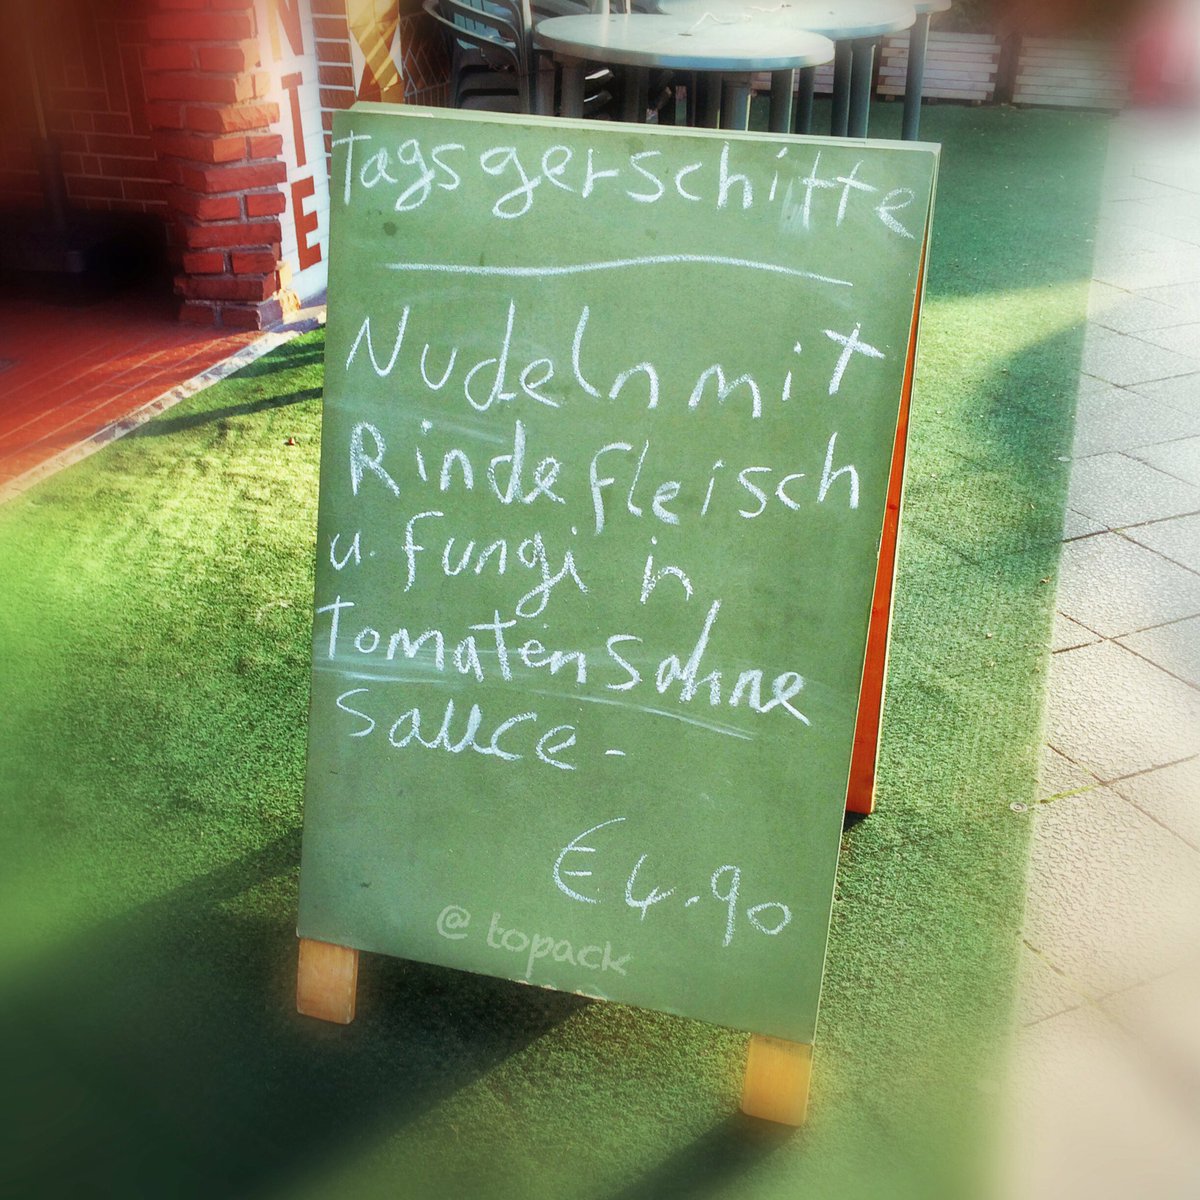 NTE
Tagsgerschitte
Nudeln mit
Rindefleisch
u. Fungi in
Tomatensahne
Sauce-
€4.90
@topack